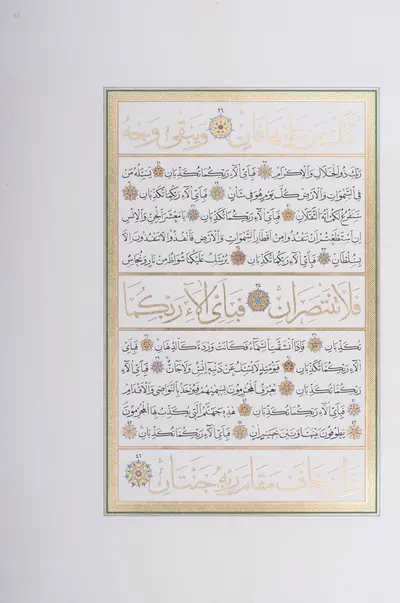 كل من عليها فان ٢٦ ويبقى وجه
ربك ذو الجلال والإكرام ٢٧ فبأي آلاء ربكما تكذبان ٢٨ يسئله من
في السموات والأرض كل يوم هو في شأن ٢٩ فبأي آلاء ربكما تكذبان ٣٠
سنفرغ لكم أيه الثقلان ٣١ فبأي آلاء ربكما تكذبان ٣٢ يا معشر الجن والإنس
إن استطعتم أن تنفذوا من أقطار السموات والأرض فانفذوا لا تنفذون إلا
بسلطان ٣٣ فبأي آلاء ربكما تكذبان ٣٤ يرسل عليكما شواظ من نار ونحاس
فلا تنتصران ٣٥ فبأي آلاء ربكما
تكذبان ٣٦ فإذا انشقت السماء فكانت وردة كالدهان ٣٧ فبأي
آلاء ربكما تكذبان ٣٨ فيومئذ لا يسئل عن ذنبه إنس ولا جان ٣٩ فبأي آلاء
ربكما تكذبان ٤٠ يعرف المجرمون بسيماهم فيؤخذ بالنواصي والأقدام
٤١ فبأي آلاء ربكما تكذبان ٤٢ هذه جهنم التي يكذب بها المجرمون
٤٣ يطوفون بينها وبين حميم آن ٤٤ فبأي آلاء ربكما تكذبان ٤٥
ولمن خاف مقام ربه جنتان ٤٦